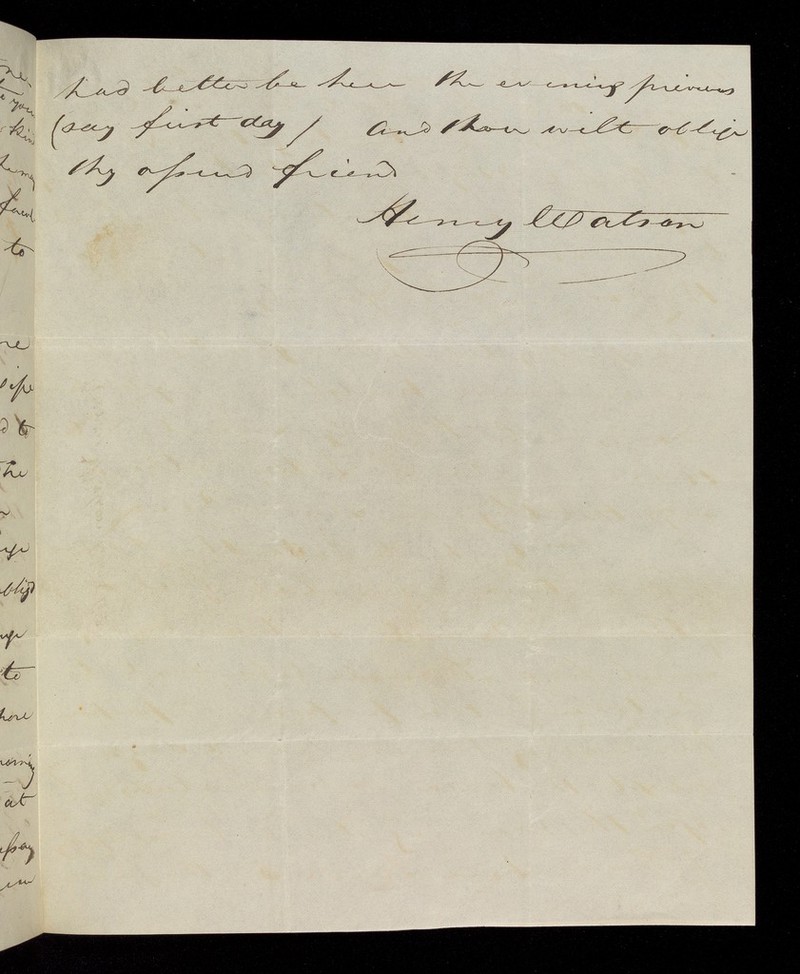 had better be here the evening previous
(say first day) and thou wilt oblige
thy assured friend
Henry Watson
to
the
to
at